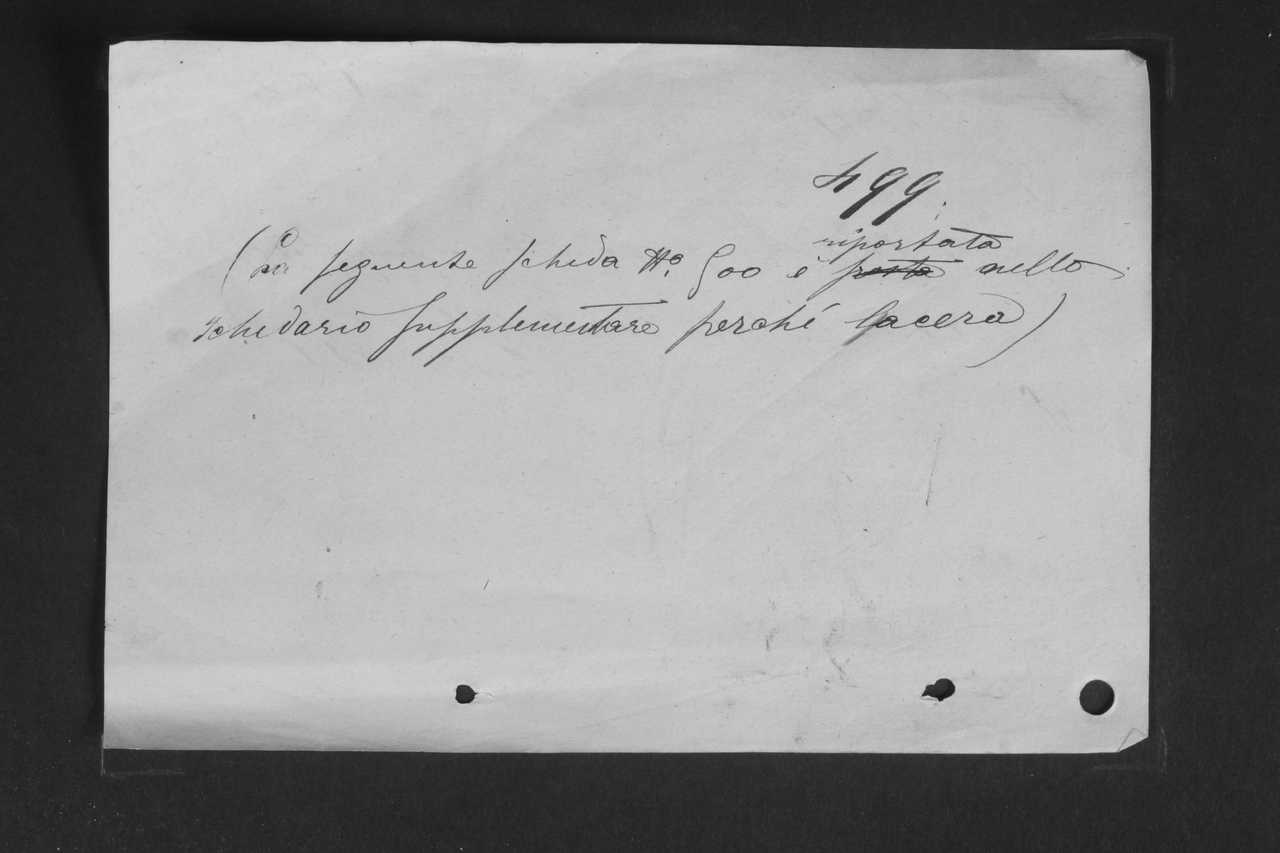 499.
riportata
(La seguente scheda No. 500 è posta nello
schedario supplementare perché lacera)